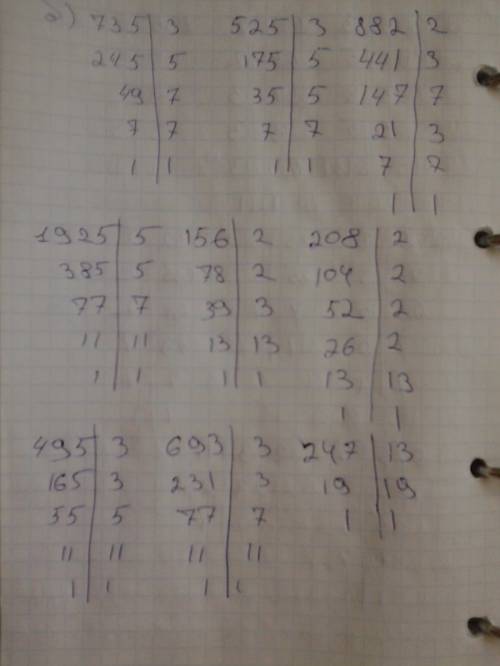 б) 735 | 3 525 | 3 882 | 2
245 | 5 175 | 5 441 | 3
49 | 7 35 | 5 147 | 7
7 | 7 7 | 7 21 | 3
1 | 1 1 | 1 7 | 7
1 | 1
1925 | 5 156 | 2 208 | 2
385 | 5 78 | 2 104 | 2
77 | 7 39 | 3 52 | 2
11 | 11 13 | 13 26 | 2
1 | 1 1 | 1 13 | 13
1 | 1
495 | 3 693 | 3 247 | 13
165 | 3 231 | 3 19 | 19
55 | 5 77 | 7 1 | 1
11 | 11 11 | 11
1 | 1 1 | 1